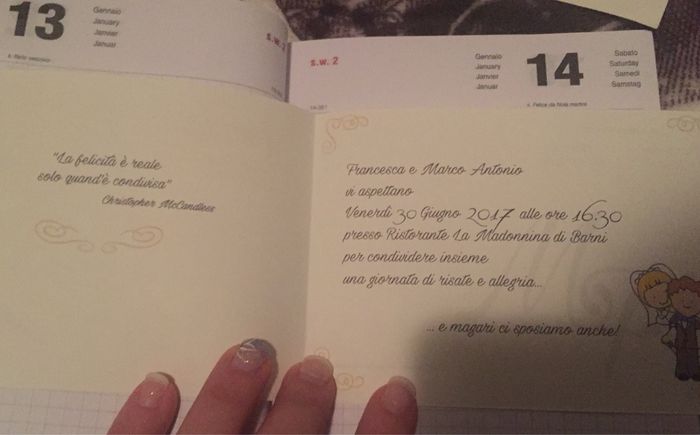 13
Gennaio
January
Janvier
Januar
s.w. 2
s.w. 2
14
Gennaio
January
Janvier
Januar
Sabato
Saturday
Samedi
Samstag
s. Felice da Nola martire
"La felicità è reale
solo quand'è condivisa"
Christopher McCandless
Francesca e Marco Antonio
vi aspettano
Venerdì 30 Giugno 2017 alle ore 16.30
presso Ristorante La Madonnina di Barni
per condividere insieme
una giornata di risate e allegria...
... e magari ci sposiamo anche!